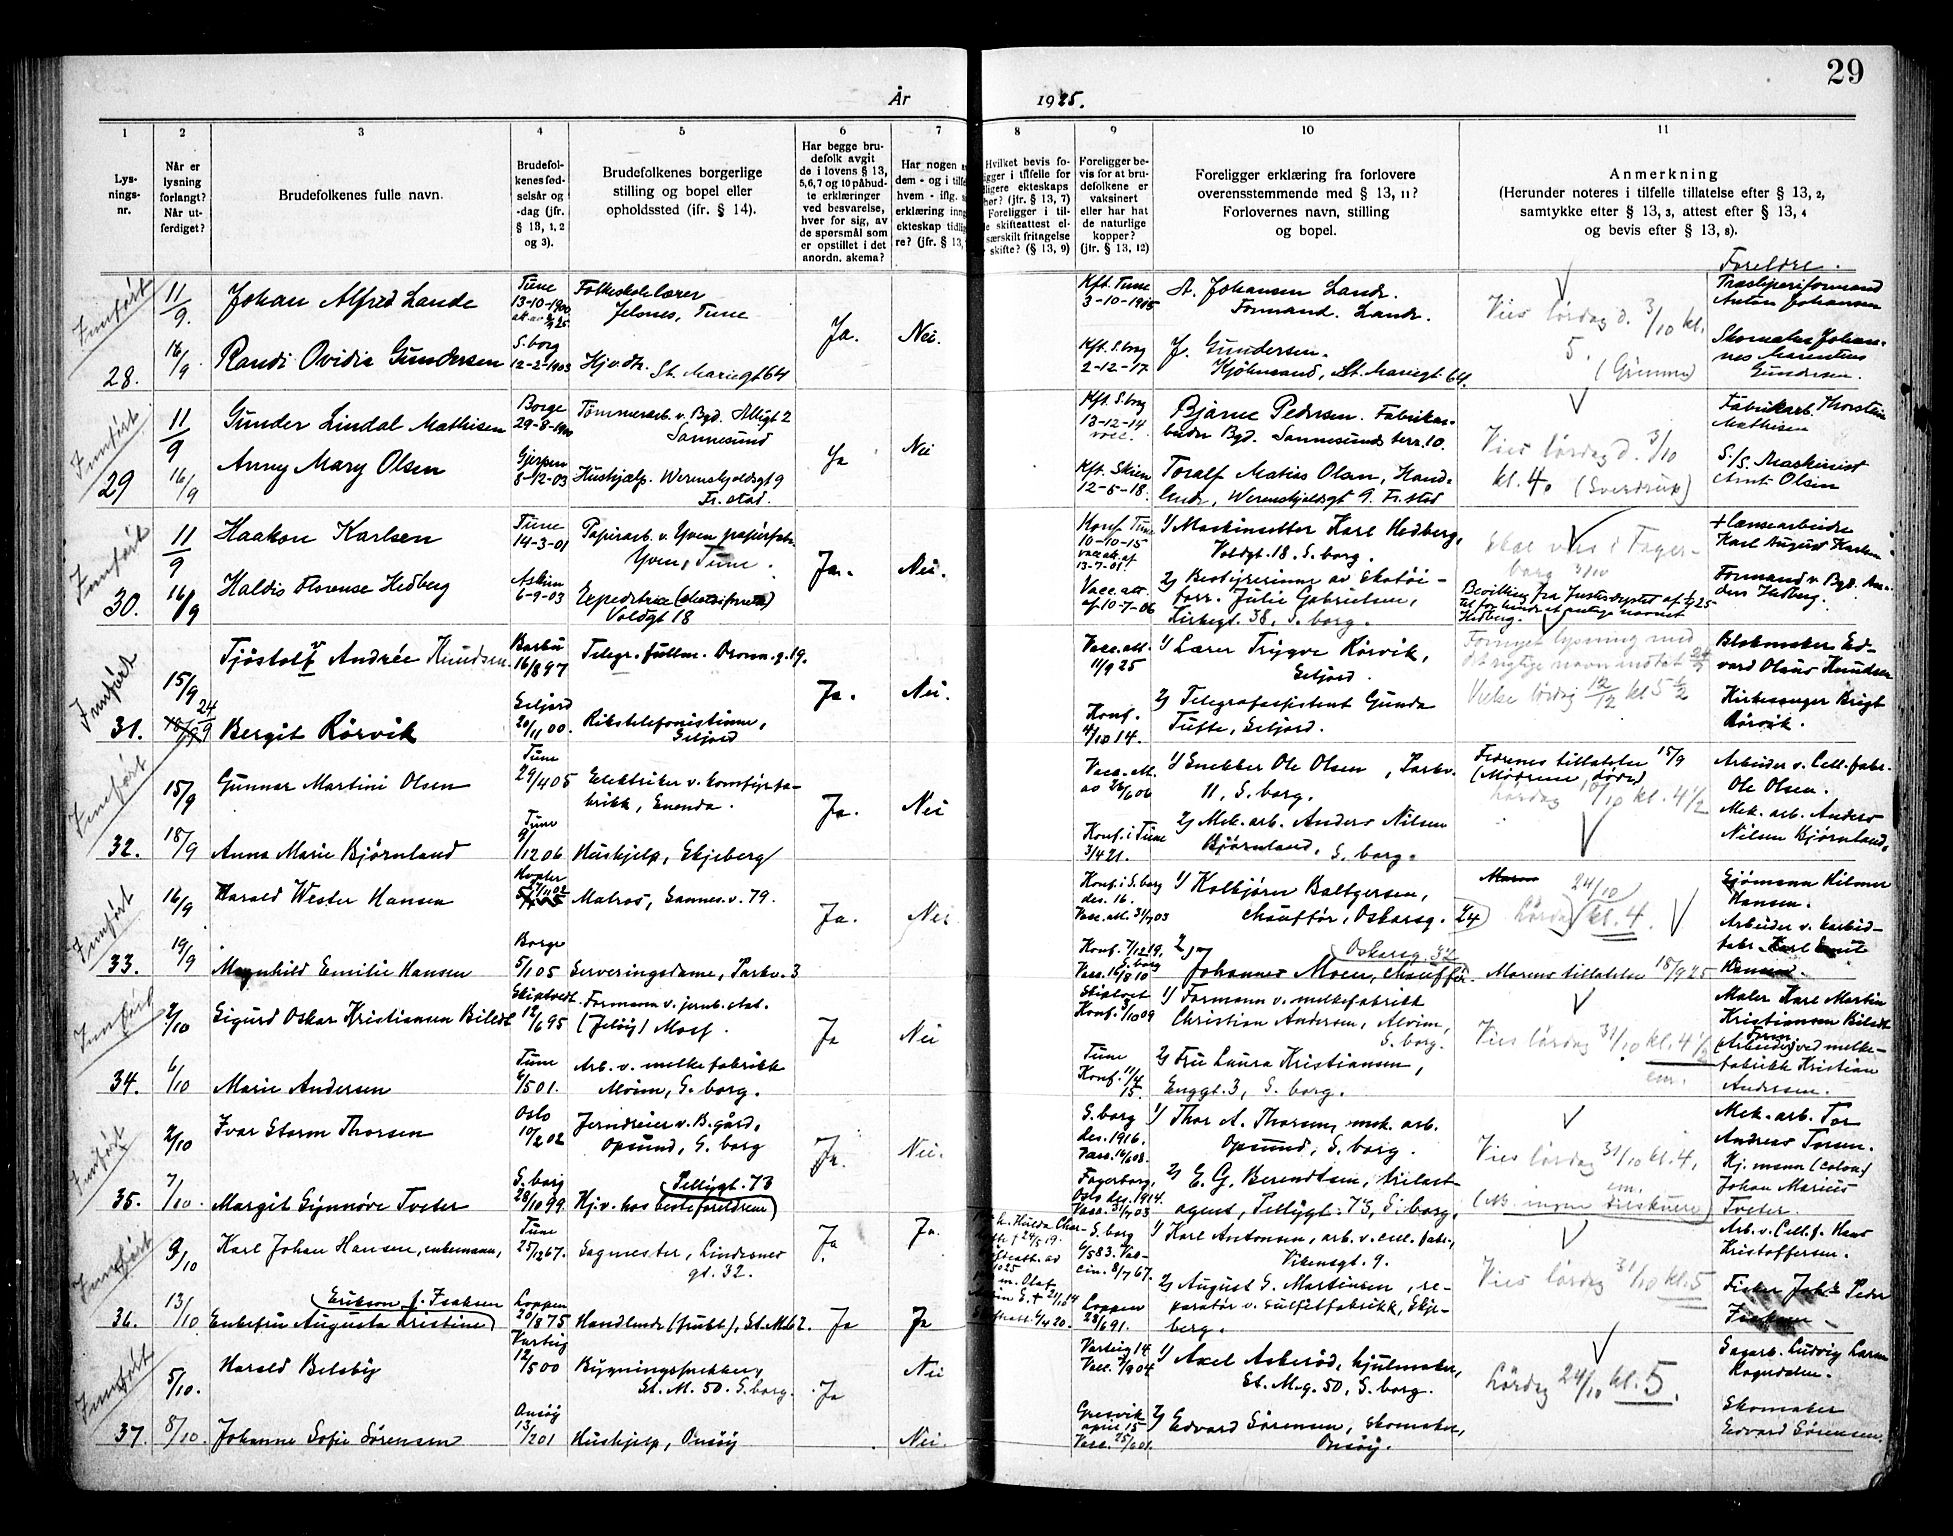 29
År 1925.
1 2 3 4 5 6 7 8 9 10 11
Lys-
nings-
nr.
Når er
lysning
forlangt?
Når ut-
ferdiget?
Brudefolkenes fulle navn.
Brudefol-
kenes fød-
selsår og
-dag (jfr.
§ 13, 1, 2
og 3).
Brudefolkenes borgerlige
stilling og bopel eller
opholdssted (ifr. § 14).
Har begge bru-
defolk avgit
de i lovens § 13,
5,6,7 og 10 påbud-
te erklæringer
ved besvarelse,
hver for sig, av
de spørsmål som
er opstillet i det
anordn. skema?
Har nogen
dem - og i
hvem - iflg.
erklæring inng
ekteskap tidlig
re? (jfr. § 13,
Hvilket bevis fo-
ligger i tilfelle for
dligere ekteskaps
hør? (jfr. § 13, 7)
Foreligger i til-
e skifteattest el-
særskilt fritagelse
skifte? (§ 13, 9)
Foreligger be-
vis for at bru-
defolkene er
vaksinert
eller har hat
de naturlige
kopper?
(jfr. § 13, 12)
Foreligger erklæring fra forlovere
overensstemmende med § 13, 11?
Forlovernes navn, stilling
og bopel.
Anmerkning
(Herunder noteres i tilfelle tillatelse efter § 13, 2,
samtykke efter § 13, 3, attest efter § 13, 4
og bevis efter § 13, 8).
Foreldre.
Innført
28.
11/9.
16/9
Johan Alfred Lande
Tune
13-10-1900
Folkeskolelærer
Jelones, Tune
Ja. Nei.
Kft. Tune
3-10-1915
A. Johansen Lande.
Formand. Lande.
Vies lørdag d. 3/10 kl.
5.
Træsliperiformand
Anton Johansen
Randi Ovidia Gundersen
S.borg
12-2-1903
Hj.v.dtr. St. Mariegt 64
Kft. S.borg
2-12-17
J. Gundersen.
Kjøbmand, St. Mariegt. 64.
(Grimme)
Skomaker Johan-
nes Marentius
Gundersen.
Innført
29
11/9
16/9
Gunder Lindal Mathisen
Borge
29-8-1900
Tømmerarb. v. Bgd. Allégt 2
Sannesund
Ja Nei
Kft. S.borg
13-12-14
vacc.
Bjarne Pedersen. Fabrikar-
beider Bgd. Sannesunds terr. 10.
Vies lørdag d. 3/10
kl. 4. (Sverdrup)
Fabrikarb. Thorstein
Mathisen
Anny Mary Olsen
Gjerpen
8-12-03
Hushjælp. Werenskjoldsgt 9
Fr.stad.
Kft. Skien
12-5-18.
Toralf Matias Olsen, Hand-
lende, Werenskjoldsgt 9. Fr.stad
S/S. Maskinist
Arnt Olsen
Innført
30.
11/9
16/9
Haakon Karlsen
Tune
14-3-01
Papirarb. v. Yven papirfabr.
Yven, Tune.
Ja. Nei.
Konf. Tune
10-10-15
vacc.att. af
13-7-01
1/ Maskinsetter Karl Hedberg,
Voldgt. 18. S.borg.
Skal vies i Fager-
borg 3/10
+ Lænsearbeider
Karl August Karlsen
Haldis Florense Hedberg
Askim
6-9-03
Expeditrice (skotøiforretn)
Voldgt 18
Vacc. att.
af 10-7-06
2/ Bestyrerinne av Skotøi-
forr. Julie Gabrielsen,
Kirkegt. 38, S.borg.
Bevilling fra Justisdeptet af 4/9 25
Hedberg.
Formand v. Bgd. An-
ders Hedberg.
Innført
31.
15/9
24/9
Tjøstolv Andrée Knudsen
Barbu
16/8 97
Telegr. fullm. Dronn.g. 19.
Ja. Nei.
Vacc. att.
11/9 25
1/ Lærer Trygve Rørvik,
Seljord.
Fornyet lysning med
det rigtige navn inntat 24/9
Vielse lørdag 12/12 kl 5 1/2
Blokmaker Ed-
vard Olaus Knudsen
Bergit Rörvik
Seljord
20/11 00.
Rikstelefonistinne,
Seljord
Konf.
4/10 14.
2/ Telegrafassistent Gunda
Tufte, Seljord.
Kirkesanger Brigt
Rörvik.
Innført
32.
15/9
18/9
Gunnar Martini Olsen
Tune
29/4 05
Elektriker v. komfyrfa-
brikk, Enenda.
Ja. Nei
Vacc. att.
av 26/6 06
1/ Snekker Ole Olsen, Parkv.
11, S.borg.
Farens tillatelse 15/9
(Moderen død)
Lørdag 10/10 kl. 4 1/2
Arbeider v. Cell.fabr.
Ole Olsen.
Anna Marie Bjørnland
Tune
9/12 06
Hushjelp, Skjeberg
Konf. i Tune
3/4 21.
2/ Mek. arb. Anders Nilsen
Bjørnland, S.borg.
Mek. arb. Anders
Nilsen Bjørnland.
Innført
33.
16/9
19/9
Harald Wester Hansen
Hvaler
Matros, Sannes.v. 79.
Ja. Nei.
Konf. i S.borg
des. 16.
Vacc. att. 31/7 03
1/ Kolbjørn Baltzersen,
Chauffør, Oskarsg. 24
24/10
Lørdag kl. 4.
Sjømann Hilmer
Hansen.
Magnhild Emilie Hansen
Borge
5/1 05
Serveringsdame, Parkv. 3
Konf. 7/12 19,
S.borg
Vacc. 16/8 10
2/
Oskarsg. 32
Johannes Moen, chauffør.
Morens tillatelse 15/9 25
Arbeider v. karbid-
fabr. Karl Emil
Hansen.
Innført
34.
2/10
6/10
Sigurd Oskar Kristiansen Bilidt
Skiptvedt
12/6 95
Formann v. jernb. stat.
(Jeløy) Moss.
Ja Nei
Skiptvet
Konf. 3/10 09
1/ Formann v. melkefabrikk
Christian Andersen, Alvim,
S.borg.
Vies lørdag 31/10 kl. 4 1/2
em.
Maler Karl Martin
Kristiansen Bilidt
Marie Andersen
Tune
6/5 01.
Arb. v. melkefabrikk
Alvim, S.borg.
Tune
Konf. 11/4
15.
2/ Fru Laura Kristiansen,
Enggt. 3, S.borg.
Form.
(Arbeider) ved melke-
fabrikk Kristian
Andersen.
Innført
35.
2/10
7/10.
Ivar Storm Thorsen
Oslo
10/2 02
Jerndreier v. B.gård,
Opsund, S.borg
Ja. Nei.
S.borg
des. 1916.
Vacc. 16/6 08.
1/ Thor A. Thorsen, mek. arb.
Opsund, S.borg.
Vies lørdag 31/10 kl. 4,
em.
Mek. arb. Tor
Andreas Torsen.
Margit Synnøve Tveter
S.borg
28/10 99.
Pellygt. 73
Hj.v. hos besteforeldrene)
Fagerborg,
Oslo des. 1914.
Vacc. 31/7 03
2/ E. G. Berendtsen, trelast-
agent, Pellygt. 73, S.borg,
(NB. ingen tilskuere)
Hj. mann (Colon)
Johan Marius
Tveter.
Innført
36.
9/10
13/10
Karl Johan Hansen, enkemann,
Tune
25/12 67.
Sagmester, Lindemns
gt. 32.
Ja Ja.
Hulda Char-
f 24/5 19.
S.borg
6/5 83. Vac-
cin. 8/7 67.
1/ Karl Antonsen, arb. v. cell. fabr.,
Vikensgt. 9.
Vies lørdag 31/10 kl. 5
Arb. v. Cell.f. Hans
Kristoffersen.
Erikson f. Isaksen
Enkefru Augusta Kristine)
Loppen
20/8 75
Handlende (frukt), St.M. 62.
Ja Ja
m. Olaf
Loppen
28/6 91.
2/ August S. Martinsen, re-
paratør v. sulfitfabrikk, Skje-
berg.
Fisker Joh's Peder
Isaksen
Innført
37.
5/10.
8/10.
Harald Belsby
Varteig
12/5 00
Bygningssnekker,
St. M. 50. S.borg.
Ja Nei
Varteig 14
Vacc. 7/9 04
1/ Axel Askerød, hjulmaker,
St. M.g. 50, S.borg.
Lørdag 24/10 kl. 5.
Sagarb. Ludvig Larsen
Johanne Sofie Sørensen
Onsøy
13/2 01
Hushjelp, Onsøy
Nei.
Gresvik
april 15
Vacc. 25/6 01.
2/ Edvard Sørensen, skomaker,
Onsøy.
Skomaker
Edvard Sørensen.